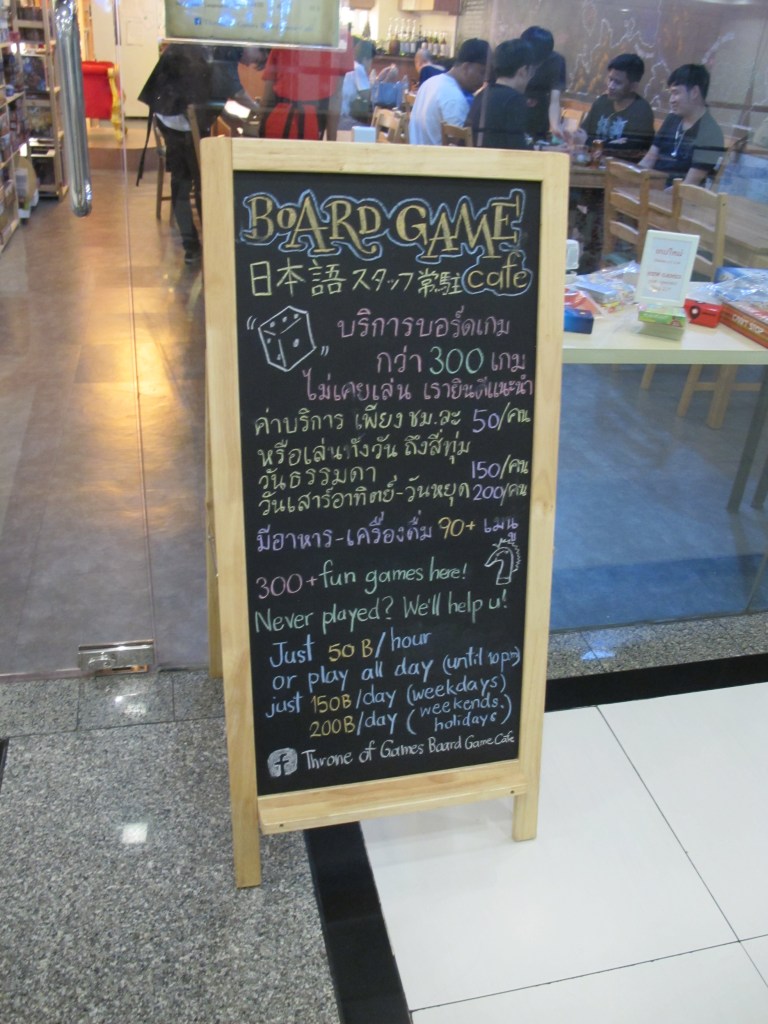 BOARD GAME
日本語スタッフ常駐 cafe
บริการบอร์ดเกม
กว่า 300 เกม
ไม่เคยเล่น เรายินดีแนะนำ
ค่าบริการ เพียง ชม.ละ 50/คน
หรือเล่นทั้งวัน ถึงสี่ทุ่ม
วันธรรมดา 150/คน
วันเสาร์อาทิตย์-วันหยุด 200/คน
มีอาหาร-เครื่องดื่ม 90+ เมนู
300+ fun games here!
Never played? We'll help u!
Just 50B/hour
or play all day (until 10pm)
just 150B/day (weekdays)
200B/day (weekends. holidays)
f Throne of Games Board Game Cafe
CAN'T STOP